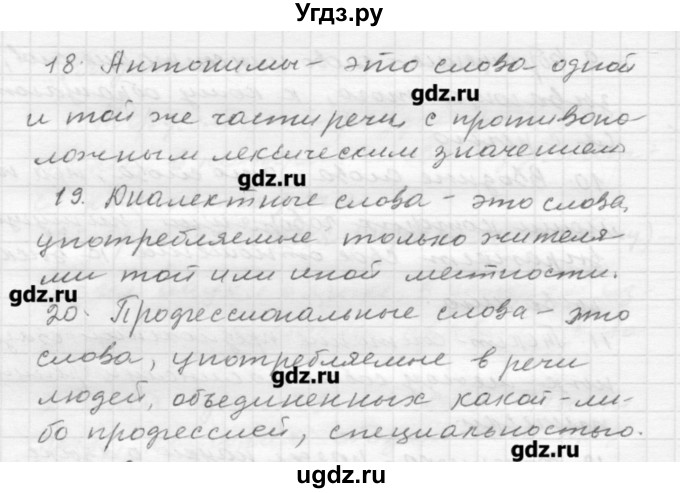 Угдз.ру
18. Антонимы - это слова одной
gdz.ru
и той же части речи, с противопо
ложным лексическим значением
gdz.ru
19. Диалектные слова - это слова,
употребляемые только жителя
ми той или иной местности.
gdz.ru
20. Профессиональные слова - это
слова, употребляемые в речи
gdz.ru
людей, объединенных какой-ли-
бо профессией, специальностью.
gdz.ru
ugdz.ru